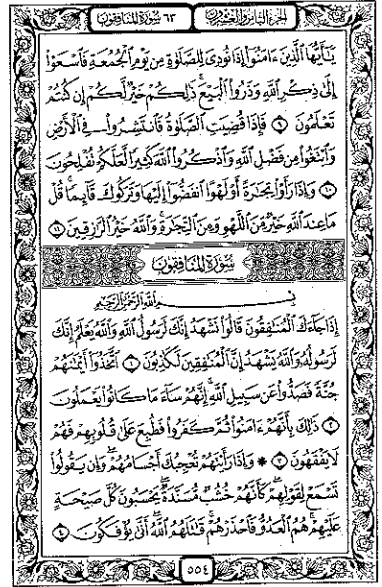 الجزء الثامن والعشرون
٦٣ سورة المنافقون
يَـٰٓأَيُّهَا ٱلَّذِينَ ءَامَنُوٓا۟ إِذَا نُودِىَ لِلصَّلَوٰةِ مِن يَوْمِ ٱلْجُمُعَةِ فَٱسْعَوْا۟
إِلَىٰ ذِكْرِ ٱللَّهِ وَذَرُوا۟ ٱلْبَيْعَ ۚ ذَٰلِكُمْ خَيْرٌ لَّكُمْ إِن كُنتُمْ
تَعْلَمُونَ ٩ فَإِذَا قُضِيَتِ ٱلصَّلَوٰةُ فَٱنتَشِرُوا۟ فِى ٱلْأَرْضِ
وَٱبْتَغُوا۟ مِن فَضْلِ ٱللَّهِ وَٱذْكُرُوا۟ ٱللَّهَ كَثِيرًا لَّعَلَّكُمْ تُفْلِحُونَ
١٠ وَإِذَا رَأَوْا۟ تِجَـٰرَةً أَوْ لَهْوًا ٱنفَضُّوٓا۟ إِلَيْهَا وَتَرَكُوكَ قَآئِمًا ۚ قُلْ
مَا عِندَ ٱللَّهِ خَيْرٌ مِّنَ ٱللَّهْوِ وَمِنَ ٱلتِّجَـٰرَةِ ۚ وَٱللَّهُ خَيْرُ ٱلرَّٰزِقِينَ ١١
سورة المنافقون
بِسْمِ ٱللَّهِ ٱلرَّحْمَـٰنِ ٱلرَّحِيمِ
إِذَا جَآءَكَ ٱلْمُنَـٰفِقُونَ قَالُوا۟ نَشْهَدُ إِنَّكَ لَرَسُولُ ٱللَّهِ ۗ وَٱللَّهُ يَعْلَمُ إِنَّكَ
لَرَسُولُهُۥ وَٱللَّهُ يَشْهَدُ إِنَّ ٱلْمُنَـٰفِقِينَ لَكَـٰذِبُونَ ١ ٱتَّخَذُوٓا۟ أَيْمَـٰنَهُمْ
جُنَّةً فَصَدُّوا۟ عَن سَبِيلِ ٱللَّهِ ۚ إِنَّهُمْ سَآءَ مَا كَانُوا۟ يَعْمَلُونَ
٢ ذَٰلِكَ بِأَنَّهُمْ ءَامَنُوا۟ ثُمَّ كَفَرُوا۟ فَطُبِعَ عَلَىٰ قُلُوبِهِمْ فَهُمْ
لَا يَفْقَهُونَ ٣ ۞ وَإِذَا رَأَيْتَهُمْ تُعْجِبُكَ أَجْسَامُهُمْ ۖ وَإِن يَقُولُوا۟
تَسْمَعْ لِقَوْلِهِمْ ۖ كَأَنَّهُمْ خُشُبٌ مُّسَنَّدَةٌ ۖ يَحْسَبُونَ كُلَّ صَيْحَةٍ
عَلَيْهِمْ ۚ هُمُ ٱلْعَدُوُّ فَٱحْذَرْهُمْ ۚ قَـٰتَلَهُمُ ٱللَّهُ ۖ أَنَّىٰ يُؤْفَكُونَ ٤
٥٥٤